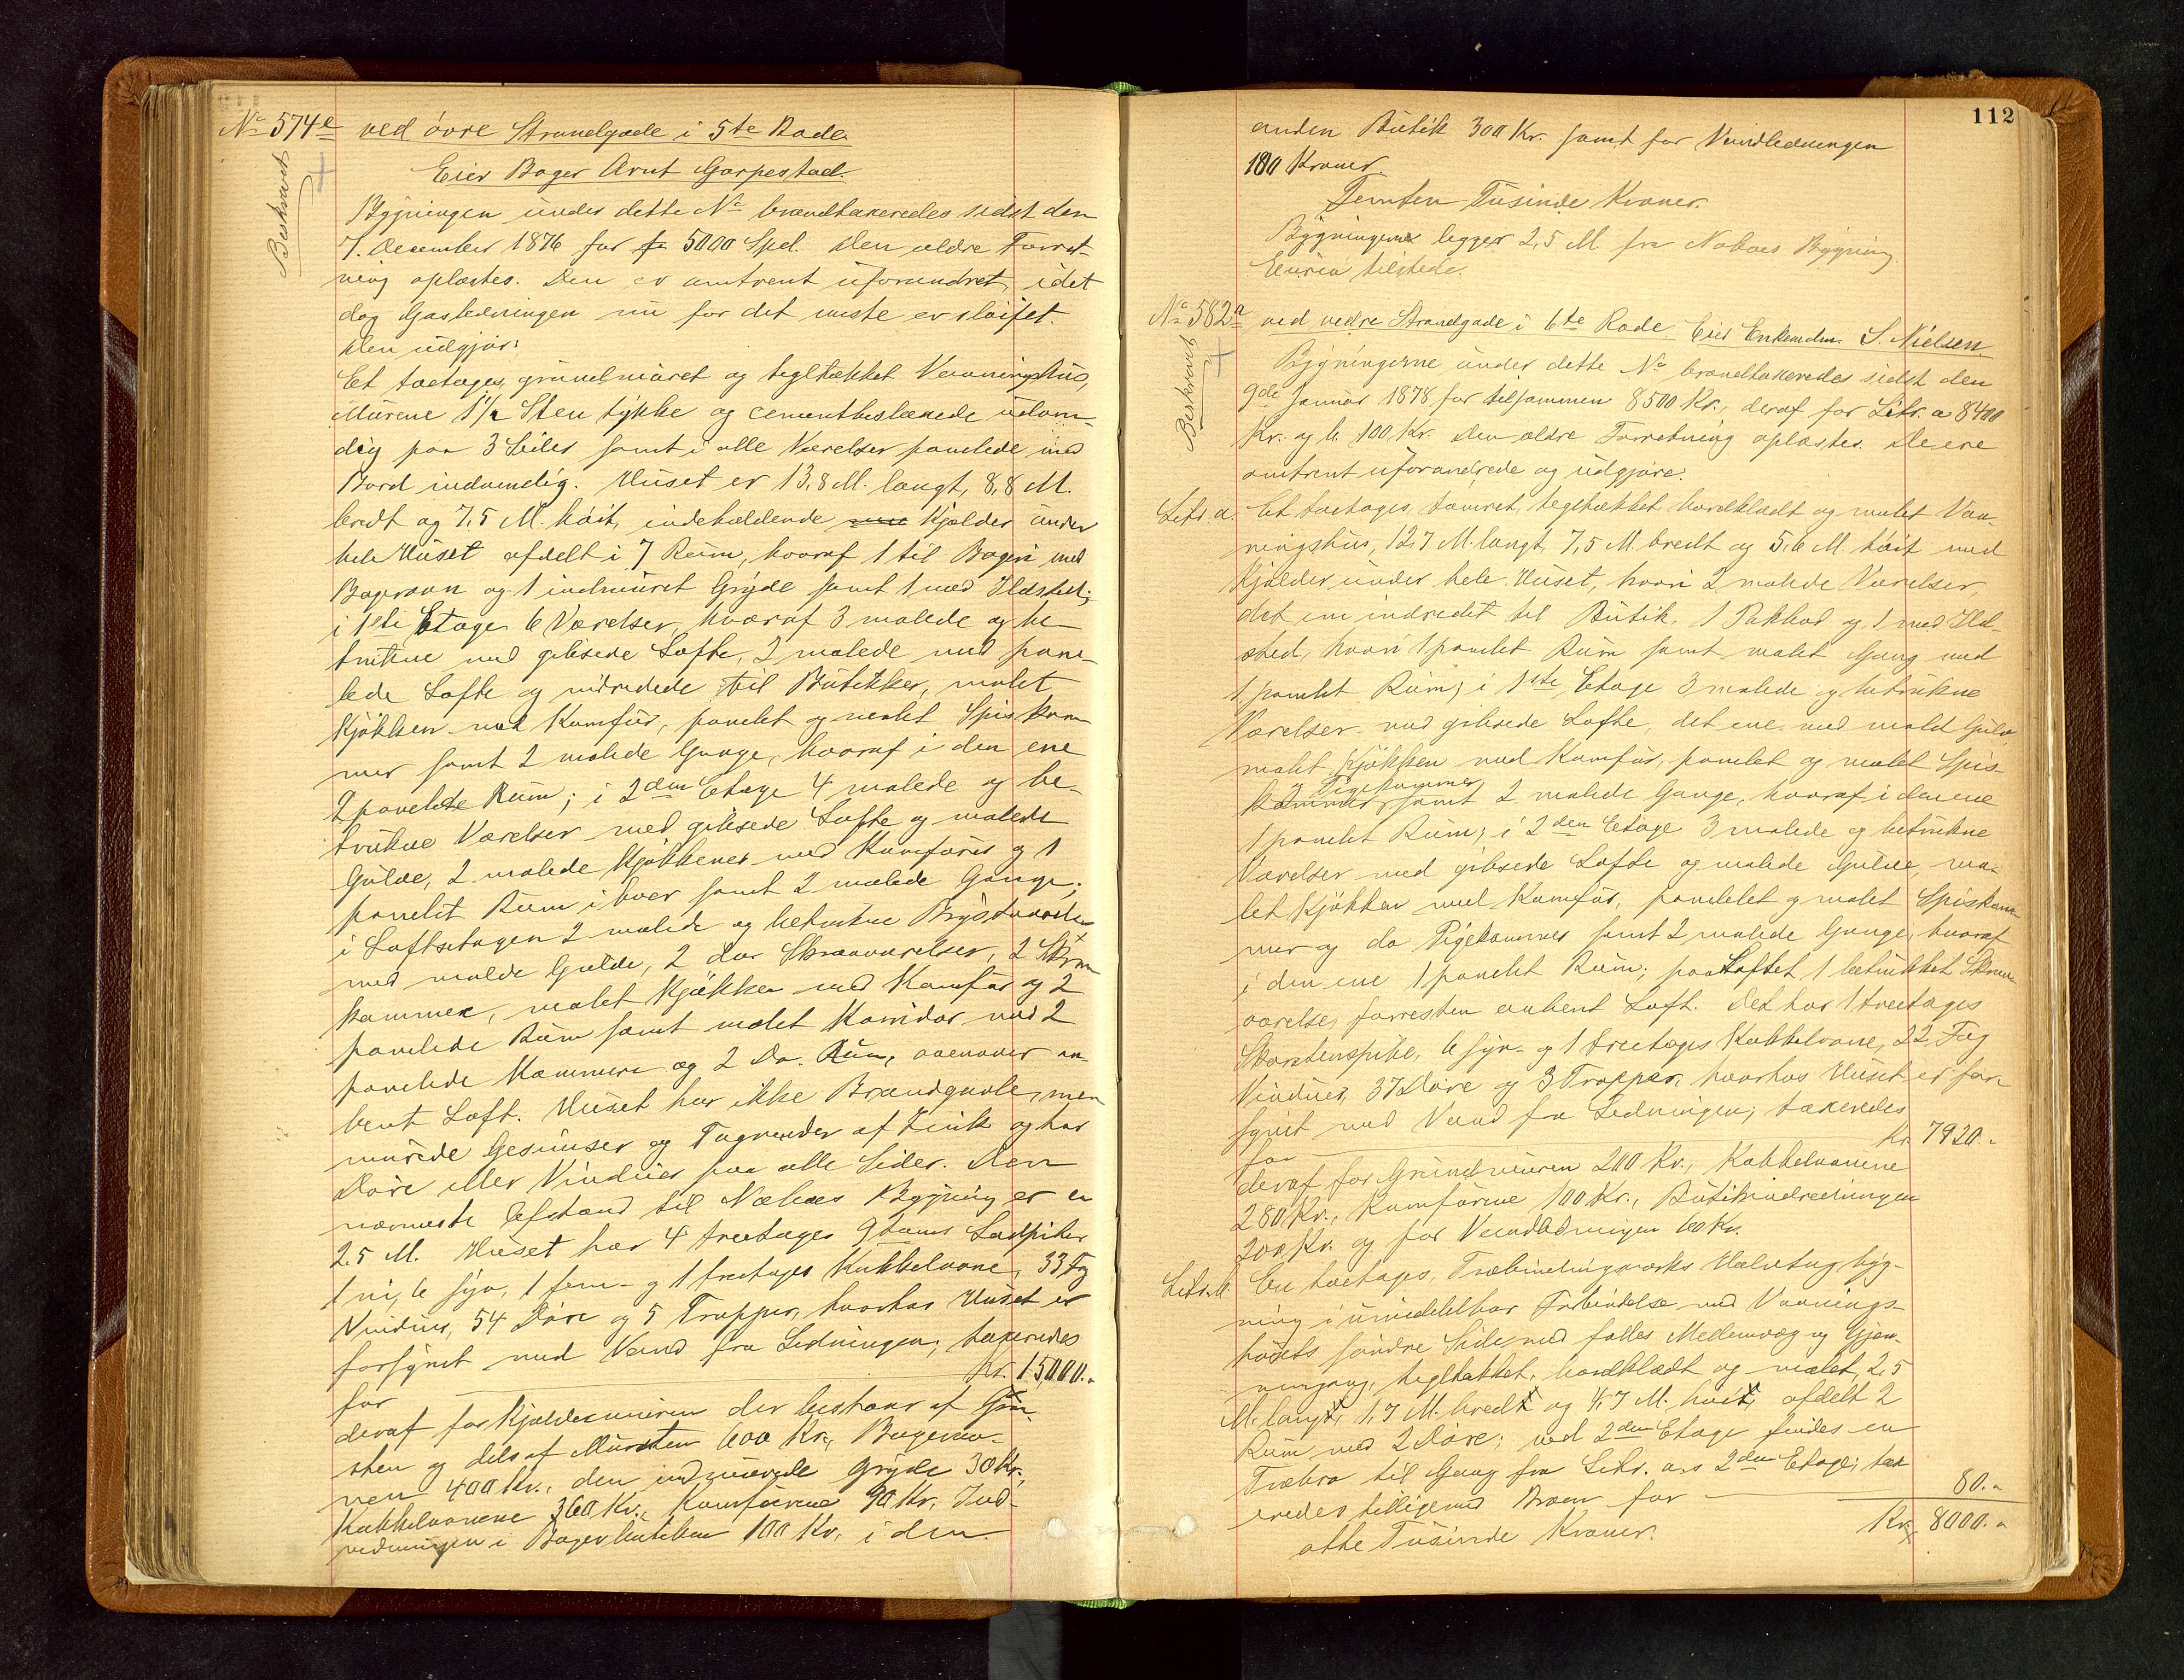 No 574e ved övre Strandgade i 5te Rode
Beskrevet
Eier Bager Arnt Garpestad.
Bygningen under dette No brandtaxeredes sidst den
7. December 1876 for 5000 Spd. Den ældre Forret-
ning oplæstes. Den er omtrent uforandret, idet
dog Gasledningen nu for det meste er slöifet.
Den udgjör:
Et toetages, grundmuret og tegltækket Vaaningshus,
Murene 1½ Sten tykke og cementbeslaaede udven-
dig paa 3 Sider samt i alle Værelser panelede med
Bord indvendig. Huset er 13,8 M. langt, 8,8 M.
bredt og 7,5 M. höit, indeholdende Kjælder under
hele Huset afdelt i 7 Rum, hvoraf 1 til Bageri med
Bagerovn og 1 indmuret Gryde samt 1 med Ildsted;
i 1ste Etage 6 Værelser, hvoraf 3 malede og be-
trukne med gibsede Lofte, 2 malede med pane-
lede Lofte og indredede til Butikker, malet
Kjökken med Komfur, panelet og malet Spiskam-
mer samt 2 malede Gange, hvoraf i den ene
2 panelede Rum; i 2den Etage 4 malede og be-
trukne Værelser med gibsede Lofte og malede
Gulve, 2 malede Kjökkener med Komfurer og 1
panelet Rum i hver samt 2 malede Gange;
i Loftsetagen 2 malede og betrukne
med malede Gulve, 2 do Skraaværelser, 2
kammer, malet Kjökken med Komfur og 2
panelede Rum samt malet Korridor med 2
panelede Kammere og 2 Do. Rum, ovenover aa-
bent Loft. Huset har ikke Brandgavle, men
murede Gesimser og Tagrender af Zink og har
Döre eller Vinduer paa alle Sider. Den
nærmeste Afstand til Naboes Bygning er en
2,5 M. Huset har 4 treetages
1 ni, 6 syv, 1 fem- og 1 treetages Kakkelovne, 33 Fag
Vinduer, 54 Döre og 5 Trapper, hvorhos Huset er
forsynet med Vand fra Ledningen; taxeredes
for Kr. 15,000.„
deraf for Kjældermuren der bestaar af Graa-
sten og dels af Mursten 600 Kr., Bagerov-
nen 400 Kr., den indmurede Gryde 30 Kr.,
Kakkelovnene 360 Kr., Komfurene 90 Kr., Ind-
redningen i Bagerbutiken 100 Kr., i den
112
anden Butik 300 Kr. samt for Vandledningen
180 Kroner.
Femten Tusinde Kroner.
Bygningen ligger 2,5 M. fra Naboes Bygning
Eieren tilstede.
No 582a ved nedre Strandgade i 6te Rode. Eier Enkemadm. S. Nielsen.
Beskrevet
Bygningerne under dette No brandtaxeredes sidst den
9de Januar 1878 for tilsammen 8500 Kr., deraf for Litr. a 8400
Kr. og b. 100 Kr. Den ældre Forretning oplæstes. De ere
omtrent uforandrede og udgjöre:
Litr. a. Et toetages, tömret, tegltækket, bordklædt og malet Vaa-
ningshus, 12,7 M. langt, 7,5 M. bredt og 5,6 M. höit med
Kjælder under hele Huset, hvori 2 malede Værelser,
det ene indredet til Butik, 1 Pakbod og 1 med Ild-
sted, hvori 1 panelet Rum samt malet Gang med
1 panelet Rum; i 1ste Etage 3 malede og betrukne
Værelser med gibsede Lofte, det ene med malet Gulv,
malet Kjökken med Komfur, panelet og malet Spis-
2 Pigekammer
kammer, samt 2 malede Gange, hvoraf i den ene
1 panelet Rum; i 2den Etage 3 malede og betrukne
Værelser med gibsede Lofte og malede Gulve, ma-
let Kjökken med Komfur, panelet og malet Spiskam-
mer og do Pigekammer samt 2 malede Gange, hvoraf
i den ene 1 panelet Rum; paa Loftet 1 betrukket Skraa-
værelse, forresten aabent Loft. Det har 1 treetages
Skorstenspibe, 6 syv- og 1 treetages Kakkelovne, 22 Fag
Vinduer, 37 Döre og 3 Trapper, hvorhos Huset er for-
synet med Vand fra Ledningen; taxeredes
for Kr. 7920.„
deraf for Grundmuren 200 Kr., Kakkelovnene
280 Kr., Komfurene 100 Kr., Butikindredningen
200 Kr. og for Vandledningen 60 Kr.
Litr. b. En toetages, Træbindingsværks Halvtagbyg-
ning i umiddelbar Forbindelse med Vaanings-
husets söndre Side med fælles Mellemvæg og Gjen-
nemgang, tegltækket, bordklædt og malet, 2,5
M. lang, 1,7 M. bred og 4,7 M. höi, afdelt 2
Rum med 2 Döre; ved 2den Etage findes en
Træbro til Gang fra Litr. a.s 2den Etage; tax-
eredes tilligemed Broen for 80.„
Kr. 8000.„
otte Tusinde Kroner.